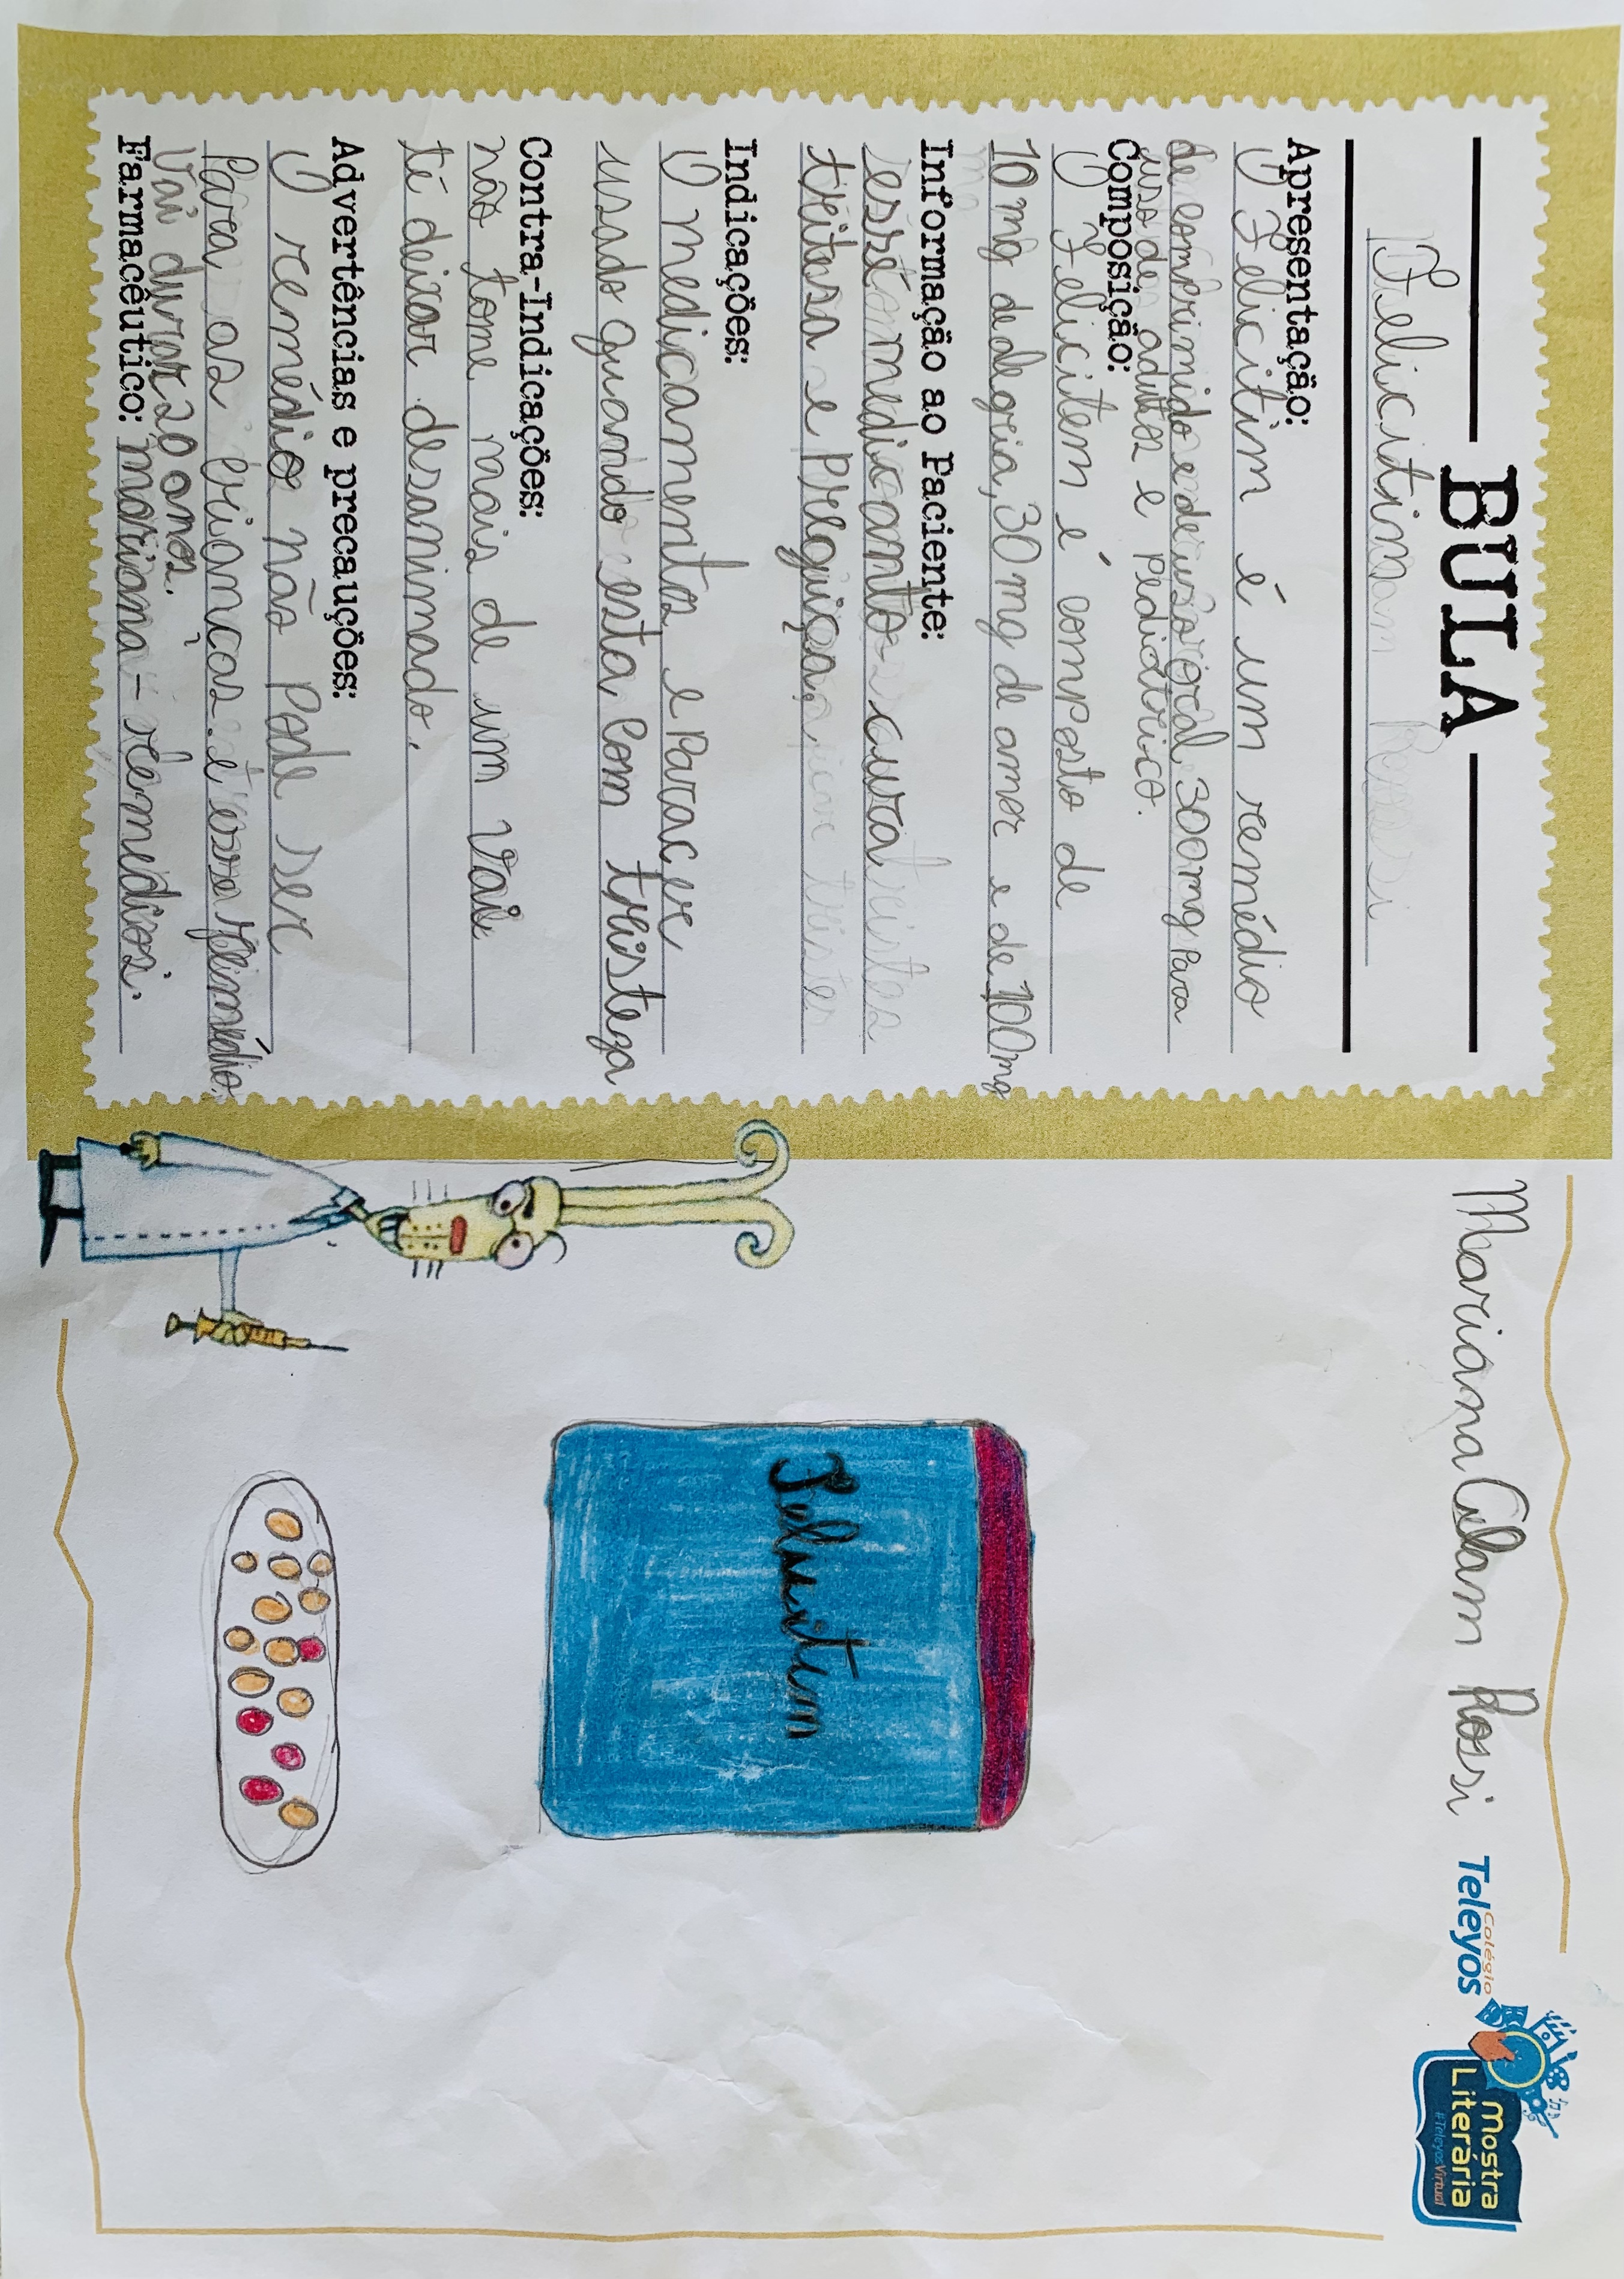 BULA
Felicitim
Apresentação:
O Felicitim é um remédio
de comprimido e de uso oral 300mg Para
uso de adultos e Pediatrico.
Composição:
O Felicitem é composto de
10 mg de alegria, 30 mg de amor e de 100mg
Informação ao Paciente:
esse medicamto cura
tritesa e Preguiça.
Indicações:
O medicamento e Paracer
usado quando esta Com tristeza
Contra-Indicações:
não tome mais de um Vai
té deixar desanimado.
Advertências e precauções:
O remédio não Pode ser
Para as crianças. e esse
Vai durar 20 anos.
Farmacêutico: mariana - remedios.
Mariana Celam Rossi
Colégio
Teleyos
Mostra
Literária
#TeleyosVirtual
Felicitim